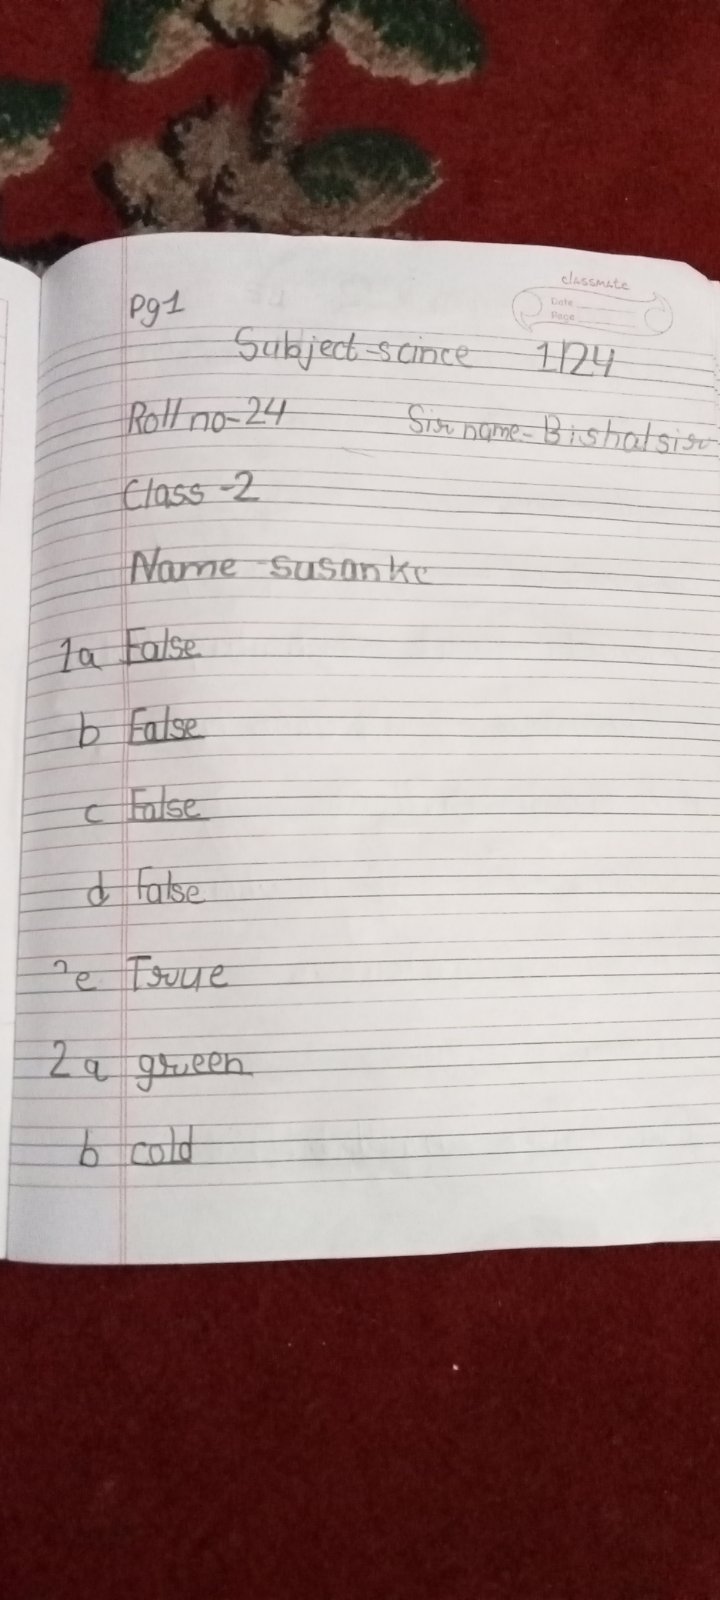 classmate
Date
Page
Pg1
Subject-scince 1/24
Roll no-24 Sir name-Bishalsir
Class-2
Name-susanke
1a False
b False
c False
d False
e True
2a green
b cold